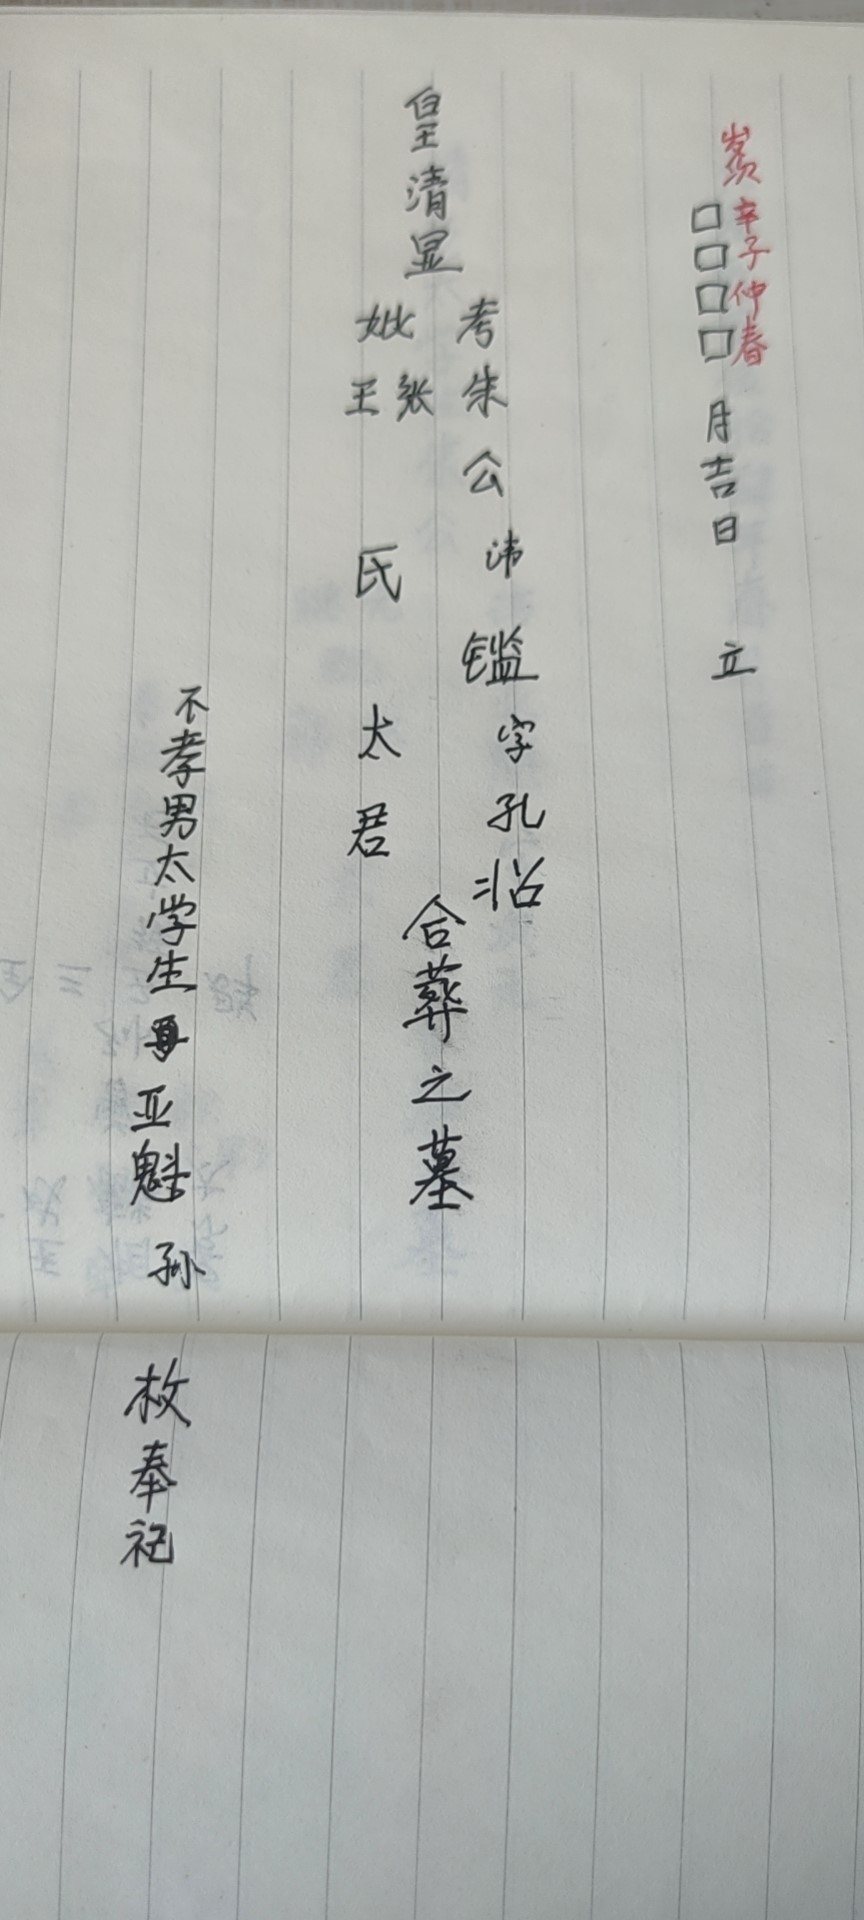 岁次辛子仲春
□□□□月吉日 立
皇清显
考朱公讳鑑字孔沼
妣张王氏太君
合葬之墓
不孝男太学生再亚魁 孙枚奉祀